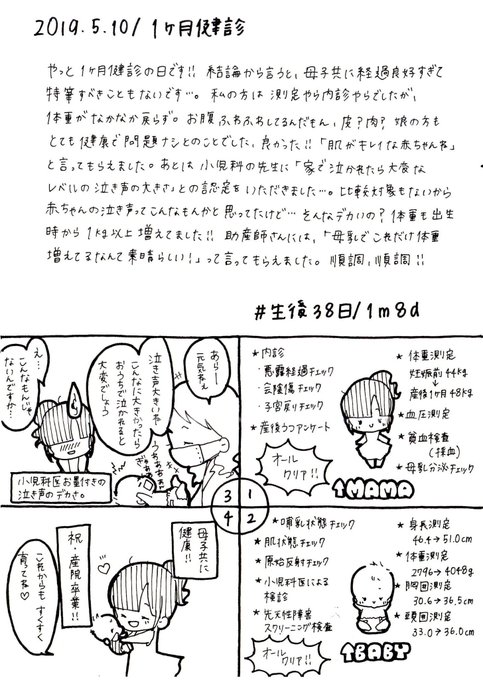 2019.5.10/1ヶ月健診
やっと1ヶ月健診の日です!! 結論から言うと、母子共に経過良好すぎて
特筆すべきこともないです…。私の方は測定やら内診やらでしたが、
体重がなかなか戻らず。お腹ふわふわしてるんだもん、皮?肉?娘の方も
とても健康で問題ナシとのことでした、良かった!!「肌がキレイな赤ちゃんね」
と言ってもらえました。あとは小児科の先生に「家で泣かれたら大変な
レベルの泣き声の大きさ」との認定をいただきました…。比較対象もないから
赤ちゃんの泣き声ってこんなもんかと思ってたけど…そんなデカいの?体重も出生
時から1kg以上増えてました!!助産師さんには、「母乳でこれだけ体重
増えてるなんて素晴らしい!」って言ってもらえました。順調、順調!!
#生後38日/1m8d
1
★内診
・悪露経過チェック
・会陰傷チェック
・子宮戻りチェック
★産後うつアンケート
オール
クリア!!
★体重測定
妊娠前44kg
↓
産後1ヶ月48kg
★血圧測定
★貧血検査
(採血)
★母乳分泌チェック
↑MAMA
2
★哺乳状態チェック
★肌状態チェック
★原始反射チェック
★小児科医による
検診
★先天性障害
スクリーニング検査
オール
クリア!!
★身長測定
46.4→51.0cm
★体重測定
2996→4048g
★胸囲測定
30.6→36.5cm
★頭囲測定
33.0→36.0cm
↑BABY
3
あらー
元気ねぇ
泣き声大きいね
こんなに大きかったら
おうちで泣かれると
大変でしょう
え…
こんなもんじゃ
ないんですか…
小児科医お墨付きの
泣き声のデカさ。
4
母子共に
健康!!
祝・産院卒業!!
これからもすくすく
育てね♡